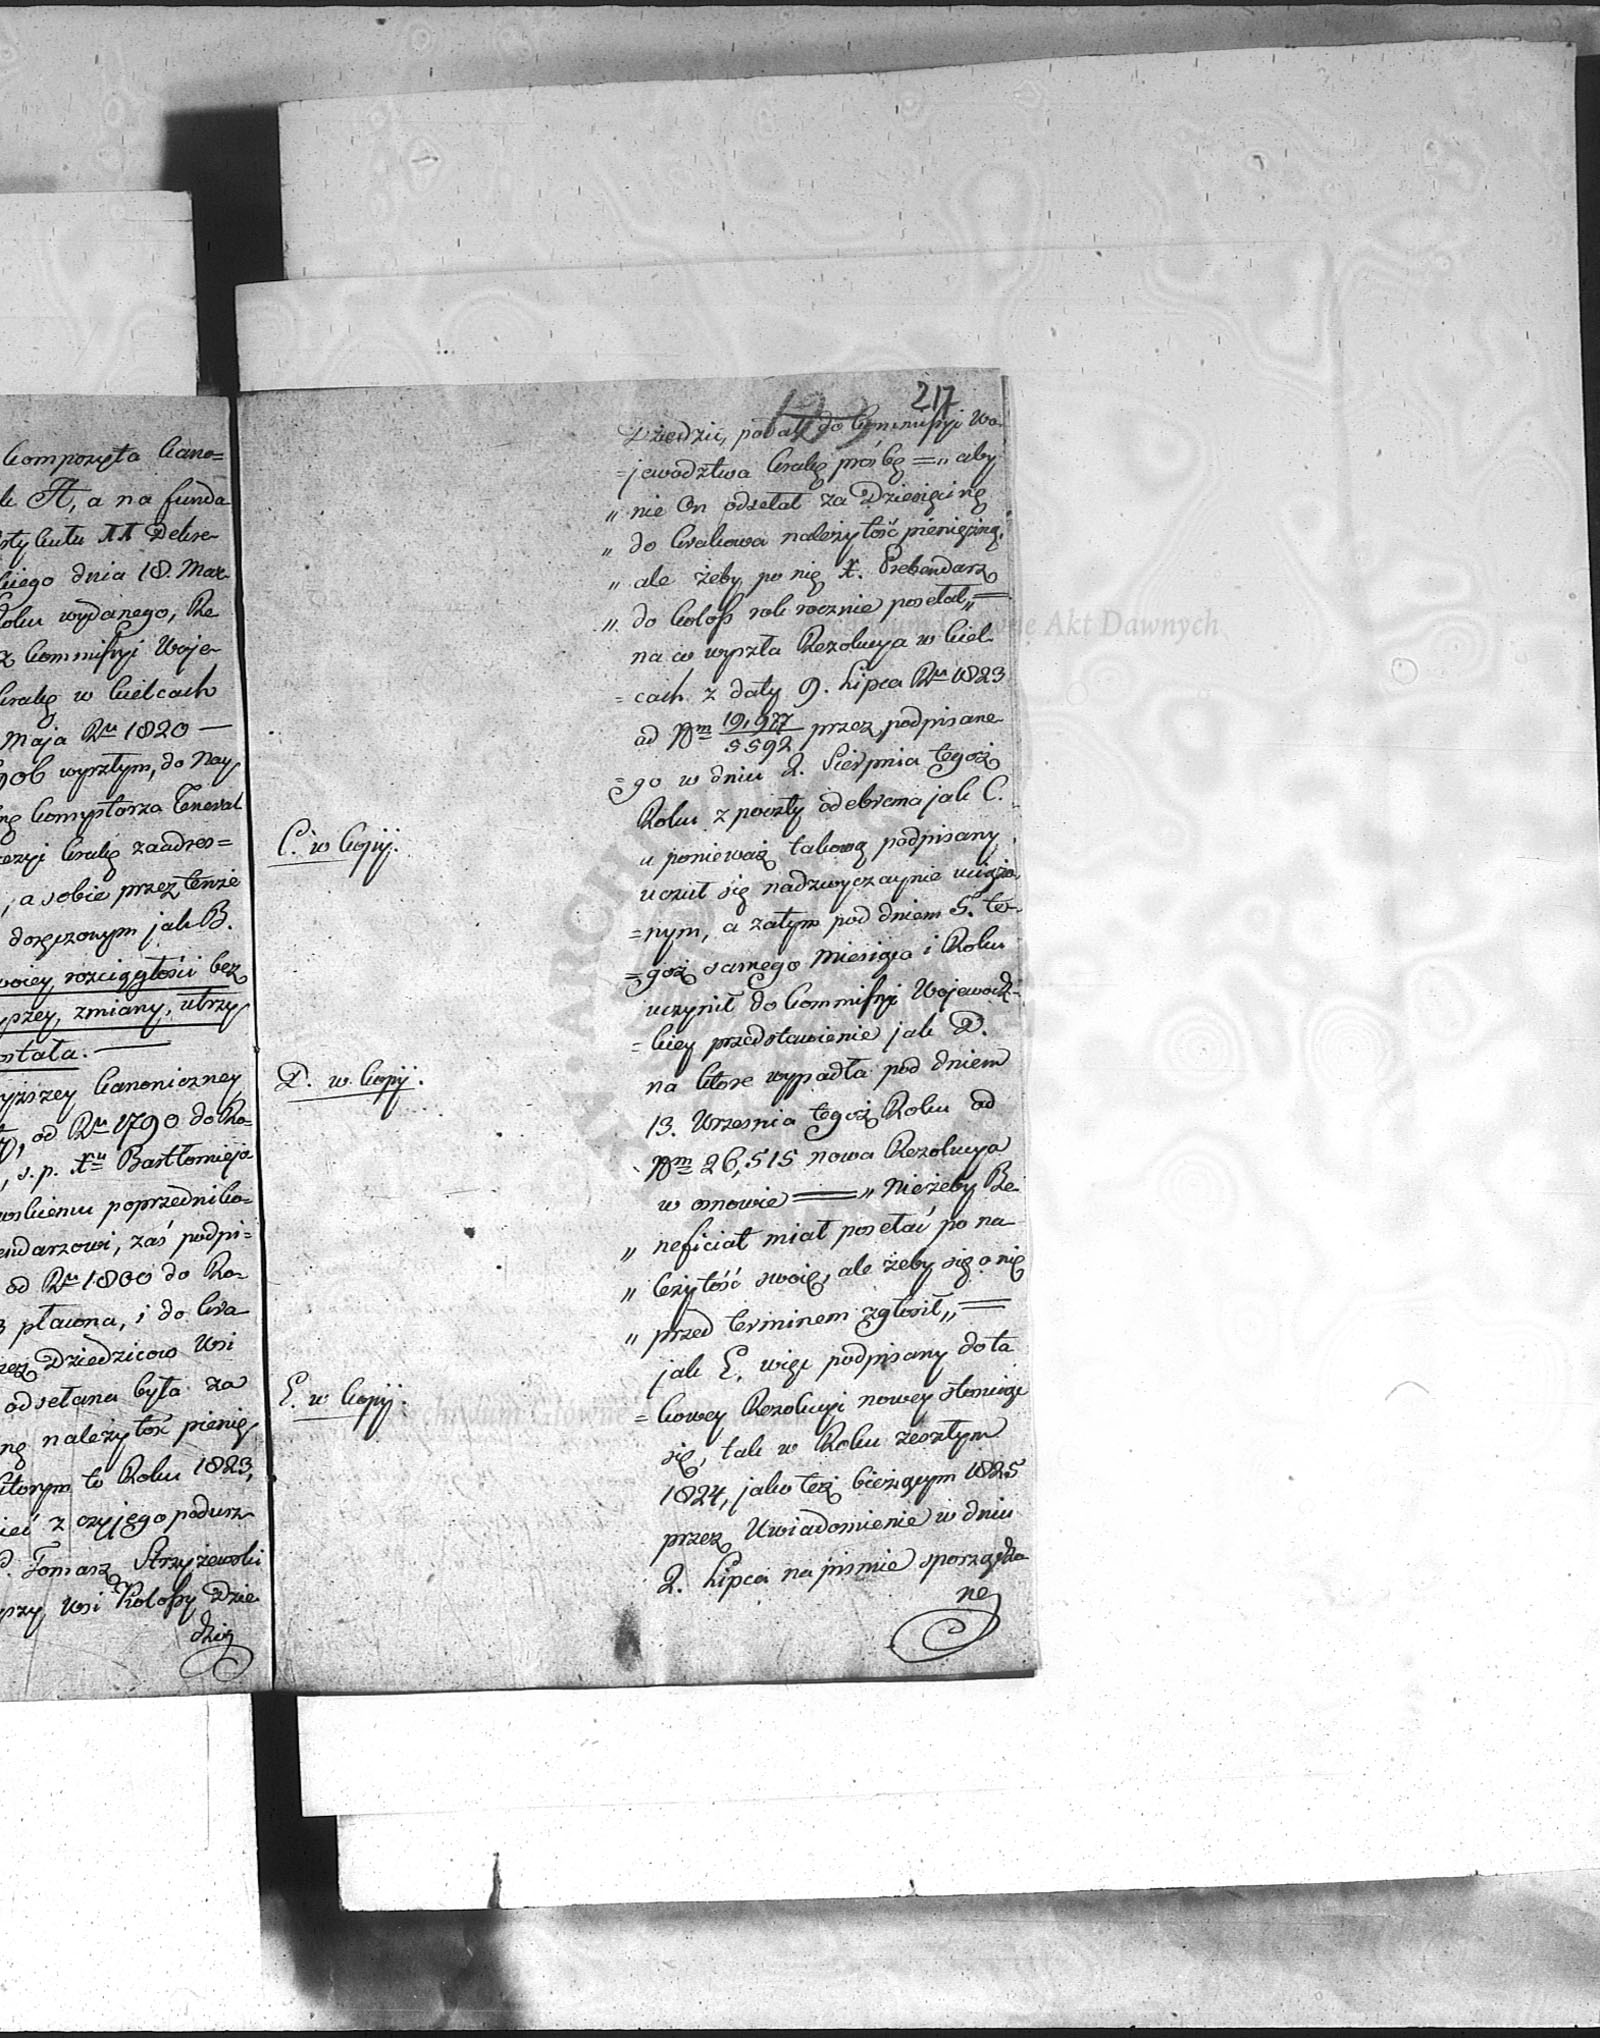 Kompozyta Kano=
A, a na funda
stytutu XX Dekre-
kiego dnia 18. Mar-
Roku wydanego, Re
z Kommissyi Woje-
Krakg w Kielcach
Maja Ru 1820 —
906 wyszłym, do Nay
Komyptorza General
cezyi Krakg zaadres=
, a sobie przez tenże
doręczonym jak B.
woiey, rozciągłości bez
yszey, zmiany, utrzy
ostała. —
yższey Kanoniczney
od Ru 1790 do Ro=
, s. p. Xu Bartłomieja
wskiemu poprzedniko=
endarzowi, zaś podpi=
od Ru 1800 do Ro-
3 płacona, i do Kra
rzez Dziedziców Wsi
odsełana była za
nę należytość pienię
którym to Roku 1823,
ieć z czyjego podusz-
P. Tomasz Strzyżewski
przy Wsi Kolossy Dzie
dzic
217
123
Dziedzic, podał do Kommissyi Wo-
=jewodztwa Krakg prośbę = „ aby
„ nie On odsełał za Dziesięcinę
„ do Krakowa należytość pieniężną,
„ ale żeby po nię X. Prebendarz
„ do Koloss rok rocznie posełał „ =
na co wyszła Rezolucya w Kiel-
=cach z daty 9. Lipca Ru 1823
ad Nm 19,977/5592 przez podpisane-
=go w dniu 2. Sierpnia tegoż
Roku z poczty odebrana jak C.
C. w Kopij.
a ponieważ takową podpisany
uczuł się nadzwyczaynie uciążo-
=nym, a zatym pod dniem 5. te-
=goż samego Miesiąca i Roku
uczynił do Kommissyi Wojewodz-
=kiey przedstawienie jak D.
D. w Kopij.
na które wypadła pod dniem
13. Wrzesnia tegoż Roku ad
Nm 26,515 nowa Rezolucya
w osnowie = „ Nie żeby Be-
„ neficiat miał posełać po na-
„ leżytość swoię, ale żeby się o nię
„ przed terminem zgłosił „ =
jak E. więc podpisany do ta
E. w Kopij.
=kowey Rezolucyi nowey stosując
się, tak w Roku zeszłym
1824, jako też bieżącym 1825
przez Uwiadomienie w dniu
2. Lipca na pismie sporządzo
ne
Archiwum Główne Akt Dawnych
Archiwum Główne